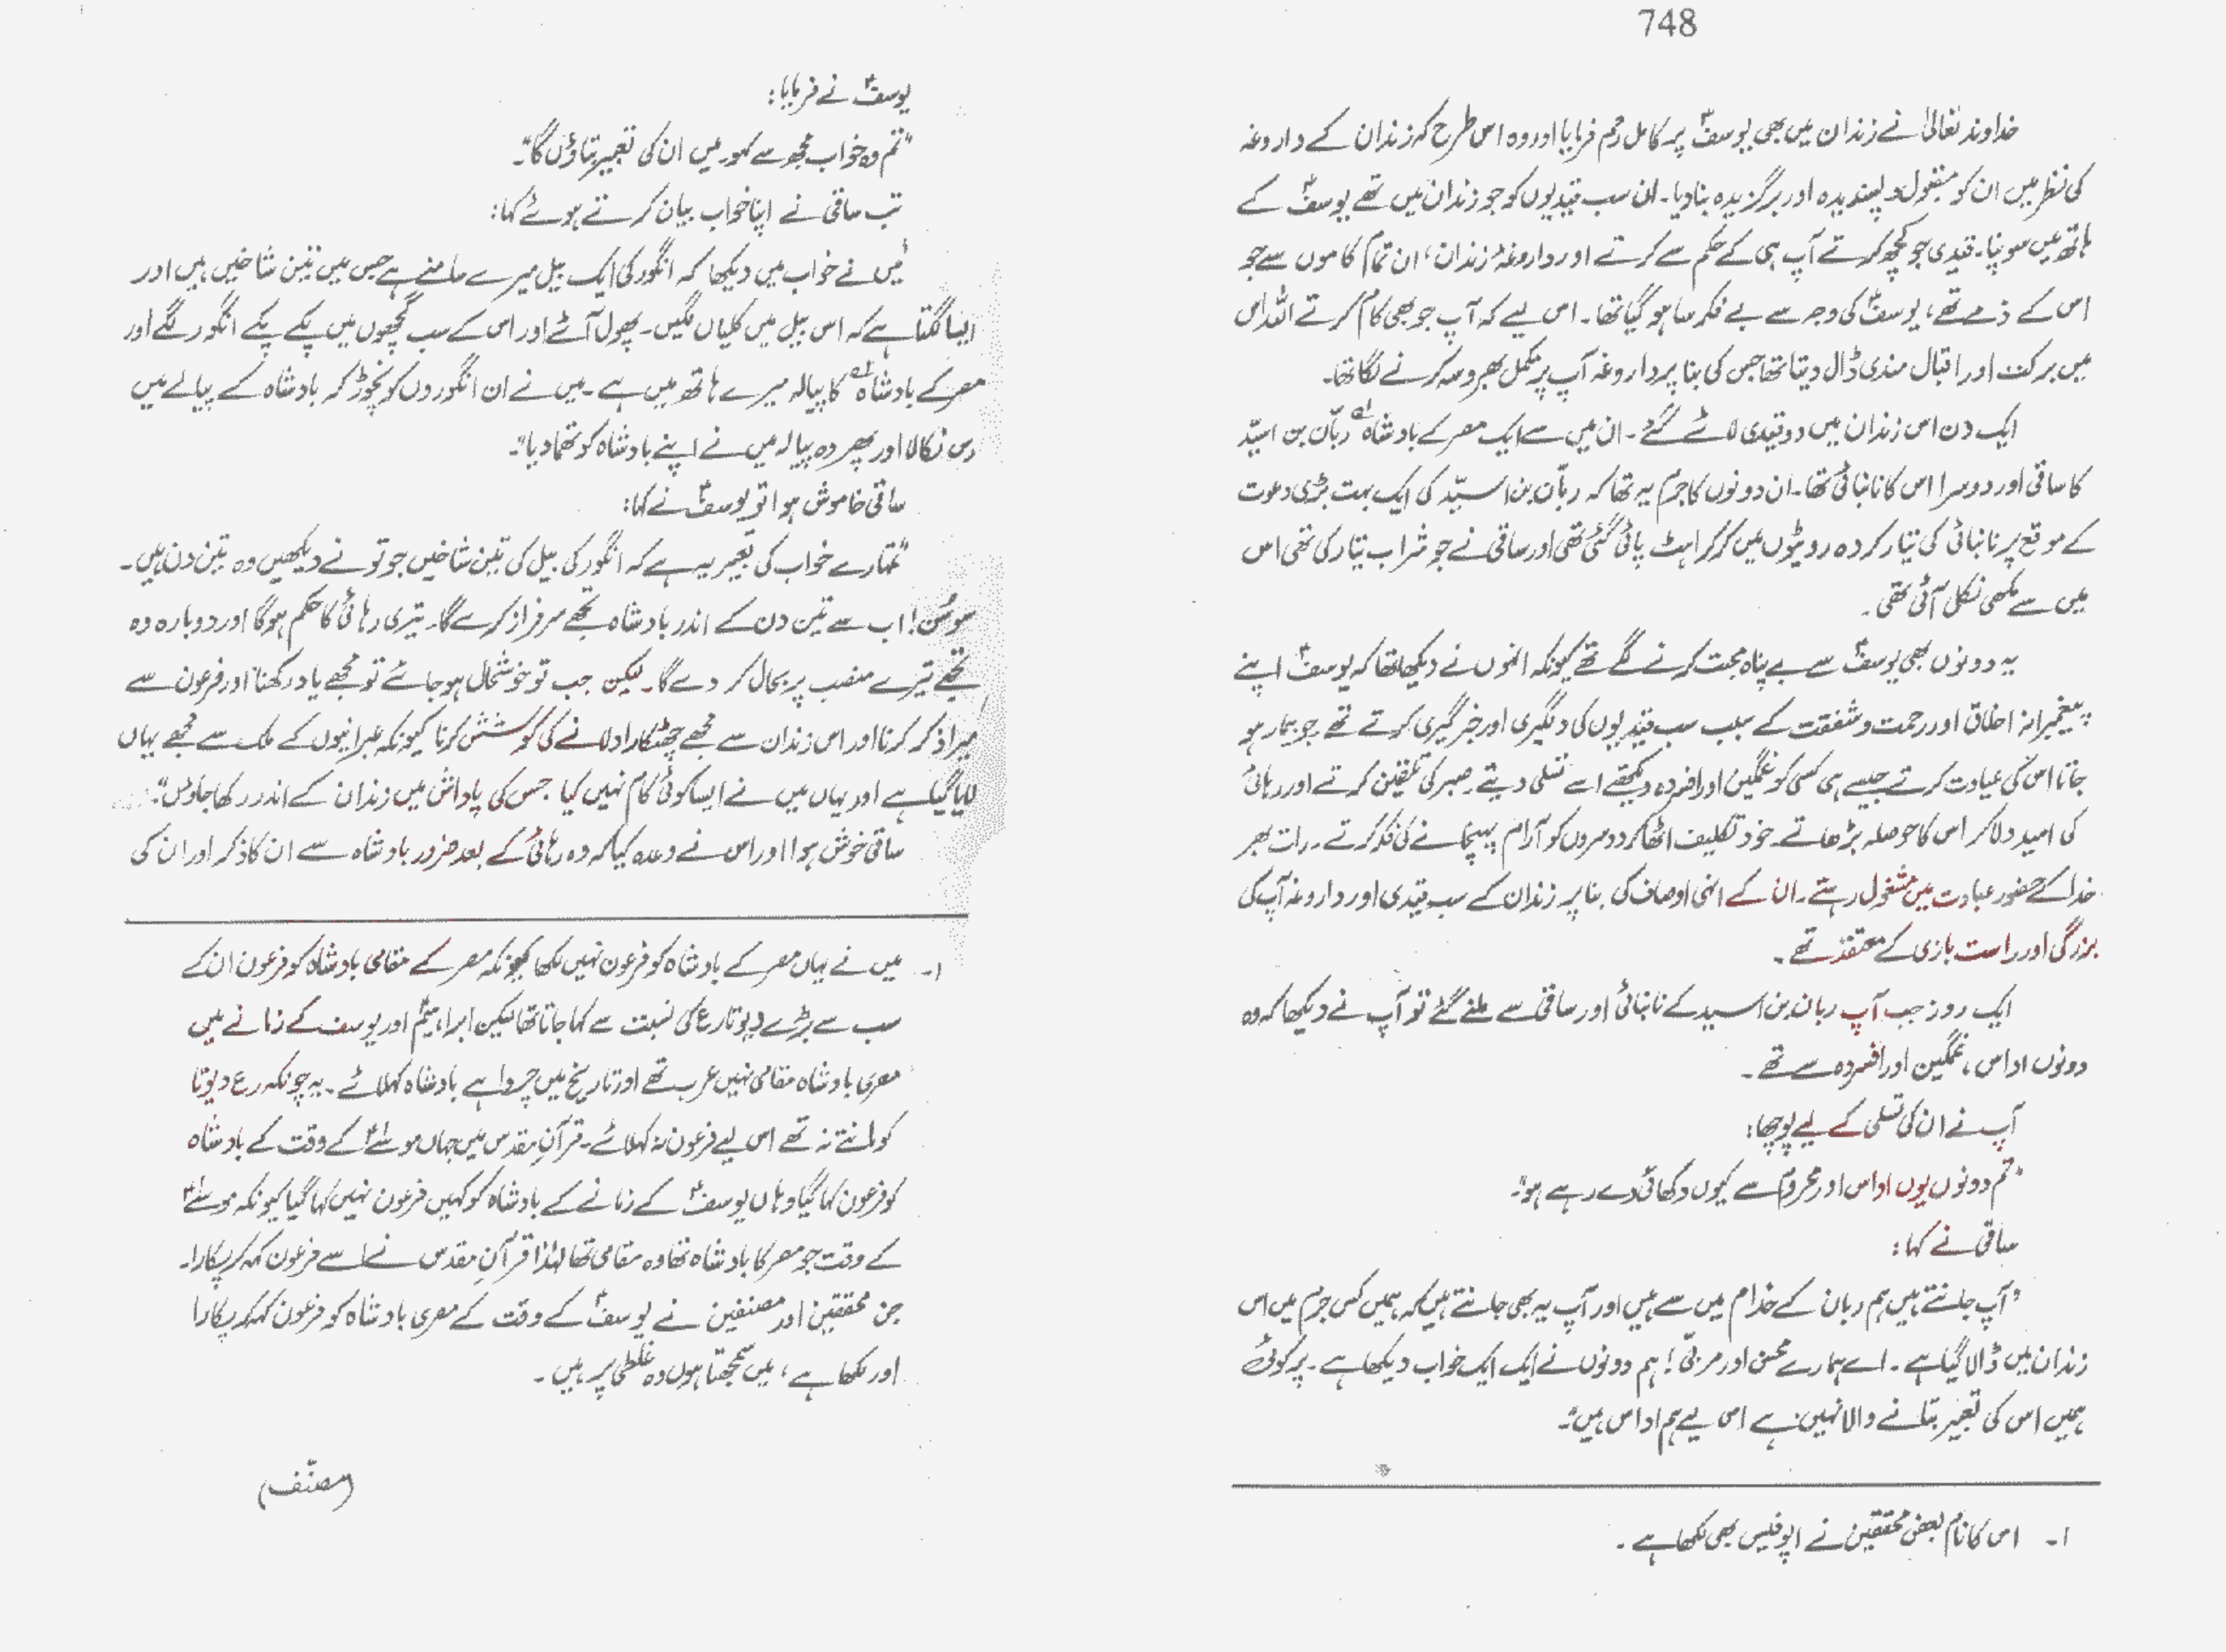 748
خداوند تعالیٰ نے زندان میں بھی یوسفؑ پر کامل رحم فرمایا اور وہ اس طرح کہ زندان کے داروغہ
کی نظر میں ان کو مقبول و پسندیدہ اور برگزیدہ بنا دیا۔ ان سب قیدیوں کو جو زندان میں تھے یوسفؑ کے
ہاتھ میں سونپا۔ قیدی جو کچھ کرتے آپ ہی کے حکم سے کرتے اور داروغۂ زندان، ان تمام کاموں سے جو
اس کے ذمے تھے، یوسفؑ کی وجہ سے بے فکر سا ہو گیا تھا۔ اس لیے کہ آپ جو بھی کام کرتے اللہ اس
میں برکت اور اقبال مندی ڈال دیتا تھا جس کی بنا پر داروغہ آپ پر مکمل بھروسہ کرنے لگا تھا۔
ایک دن اس زندان میں دو قیدی لائے گئے۔ ان میں سے ایک مصر کے بادشاہ۱ ربّان بن اسیّد
کا ساقی اور دوسرا اس کا نانبائی تھا۔ ان دونوں کا جرم یہ تھا کہ ربّان بن اسیّد کی ایک بہت بڑی دعوت
کے موقع پر نانبائی کی تیار کردہ روٹیوں میں کرکراہٹ پائی گئی تھی اور ساقی نے جو شراب تیار کی تھی اس
میں سے مکھی نکل آئی تھی۔
یہ دونوں بھی یوسفؑ سے بے پناہ محبت کرنے لگے تھے کیونکہ انہوں نے دیکھا تھا کہ یوسفؑ اپنے
پیغمبرانہ اخلاق اور رحمت و شفقت کے سبب سب قیدیوں کی دیگری اور خبر گیری کرتے تھے جو بیمار ہو
جاتا اس کی عیادت کرتے جیسے ہی کسی کو غمگین اور افسردہ دیکھتے اسے تسلی دیتے۔ صبر کی تلقین کرتے اور رہائی
کی امید دلا کر اس کا حوصلہ بڑھاتے۔ خود تکلیف اٹھا کر دوسروں کو آرام پہنچانے کی فکر کرتے۔ رات بھر
خدا کے حضور عبادت میں مشغول رہتے۔ ان کے انہی اوصاف کی بنا پر زندان کے سب قیدی اور داروغہ آپ کی
بزرگی اور راست بازی کے معتقد تھے۔
ایک روز جب آپ ربان بن اسید کے نانبائی اور ساقی سے ملنے گئے تو آپ نے دیکھا کہ وہ
دونوں اداس، غمگین اور افسردہ سے تھے۔
آپ نے ان کی تسلی کے لیے پوچھا:
"تم دونوں یوں اداس اور محروم سے کیوں دکھائی دے رہے ہو"۔
ساقی نے کہا:
"آپ جانتے ہیں ہم ربان کے خدام میں سے ہیں اور آپ یہ بھی جانتے ہیں کہ ہمیں کس جرم میں اس
زندان میں ڈالا گیا ہے۔ اے ہمارے محسن اور مربی! ہم دونوں نے ایک ایک خواب دیکھا ہے۔ پر کوئی
ہمیں اس کی تعبیر بتانے والا نہیں ہے اس لیے ہم اداس ہیں"۔
۱۔ اس کا نام بعض محققین نے اپوفیس بھی لکھا ہے۔
یوسفؑ نے فرمایا:
"تم وہ خواب مجھ سے کہو۔ میں ان کی تعبیر بتاؤں گا"۔
تب ساقی نے اپنا خواب بیان کرتے ہوئے کہا:
"میں نے خواب میں دیکھا کہ انگور کی ایک بیل میرے سامنے ہے جس میں تین شاخیں ہیں اور
ایسا لگتا ہے کہ اس بیل میں کلیاں لگیں۔ پھول آئے اور اس کے سب گچھوں میں پکے پکے انگور لگے اور
مصر کے بادشاہ۱ کا پیالہ میرے ہاتھ میں ہے۔ میں نے ان انگوروں کو نچوڑ کر بادشاہ کے پیالے میں
رس نکالا اور پھر وہ پیالہ میں نے اپنے بادشاہ کو تھما دیا"۔
ساقی خاموش ہوا تو یوسفؑ نے کہا:
"تمہارے خواب کی تعبیر یہ ہے کہ انگور کی بیل کی تین شاخیں جو تو نے دیکھیں وہ تین دن ہیں۔
سو سُن! اب سے تین دن کے اندر بادشاہ تجھے سرفراز کرے گا۔ تیری رہائی کا حکم ہو گا اور دوبارہ وہ
تجھے تیرے منصب پر بحال کر دے گا۔ لیکن جب تو خوشحال ہو جائے تو مجھے یاد رکھنا اور فرعون سے
میرا ذکر کرنا اور اس زندان سے مجھے چھٹکارا دلانے کی کوشش کرنا کیونکہ عبرانیوں کے ملک سے مجھے یہاں
لایا گیا ہے اور یہاں میں نے ایسا کوئی کام نہیں کیا جس کی پاداش میں زندان کے اندر رکھا جاؤں"۔
ساقی خوش ہوا اور اس نے وعدہ کیا کہ وہ رہائی کے بعد ضرور بادشاہ سے ان کا ذکر اور ان کی
۱۔ میں نے یہاں مصر کے بادشاہ کو فرعون نہیں لکھا کیونکہ مصر کے مقامی بادشاہ کو فرعون ان کے
سب سے بڑے دیوتا رع کی نسبت سے کہا جاتا تھا لیکن ابراہیمؑ اور یوسف کے زمانے میں
مصری بادشاہ مقامی نہیں عرب تھے اور تاریخ میں چرواہے بادشاہ کہلائے۔ یہ چونکہ رع دیوتا
کو مانتے نہ تھے اس لیے فرعون نہ کہلائے۔ قرآنِ مقدس میں جہاں موسیٰؑ کے وقت کے بادشاہ
کو فرعون کہا گیا وہاں یوسفؑ کے زمانے کے بادشاہ کو کہیں فرعون نہیں کہا گیا کیونکہ موسیٰؑ
کے وقت جو مصر کا بادشاہ تھا وہ مقامی تھا لہٰذا قرآنِ مقدس نے اسے فرعون کہہ کر پکارا۔
جن محققین اور مصنفین نے یوسفؑ کے وقت کے مصری بادشاہ کو فرعون کہہ کر پکارا
اور لکھا ہے، میں سمجھتا ہوں وہ غلطی پر ہیں۔
(مصنّف)